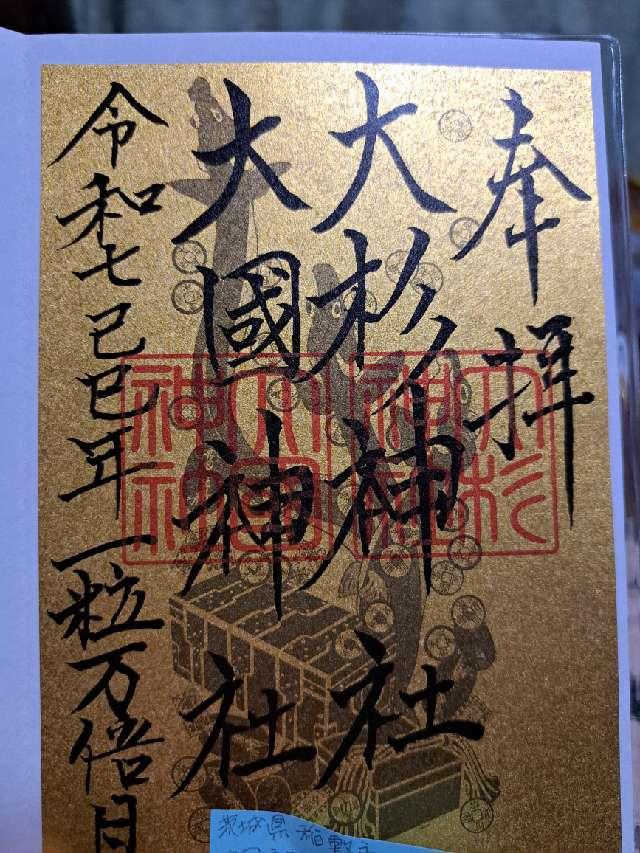 奉拝
大杉神社
大國神社
令和七己巳年一粒万倍日
大杉神社
大國神社
茨城県稲敷市